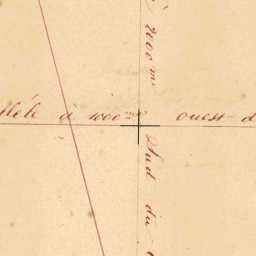 à 2000 m
à 1000 m ouest d
Sud du